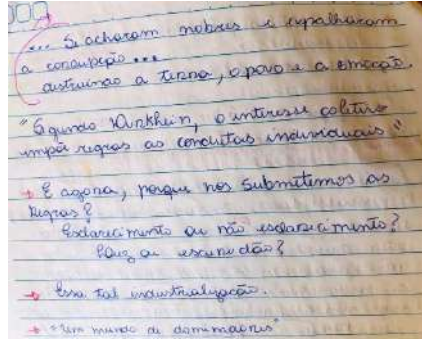 ... Se acharam nobres e espalharam
a corrupção ...
destruindo a terra, o povo e a emoção.
"Segundo Durkheim, o interesse coletivo
impõe regras as condutas individuais."
→ E agora, porque nos submetemos as
Regras?
Esclarecimento ou não esclarecimento?
Luz ou escuridão?
→ Essa tal industrialização.
→ "Um mundo de dominações"